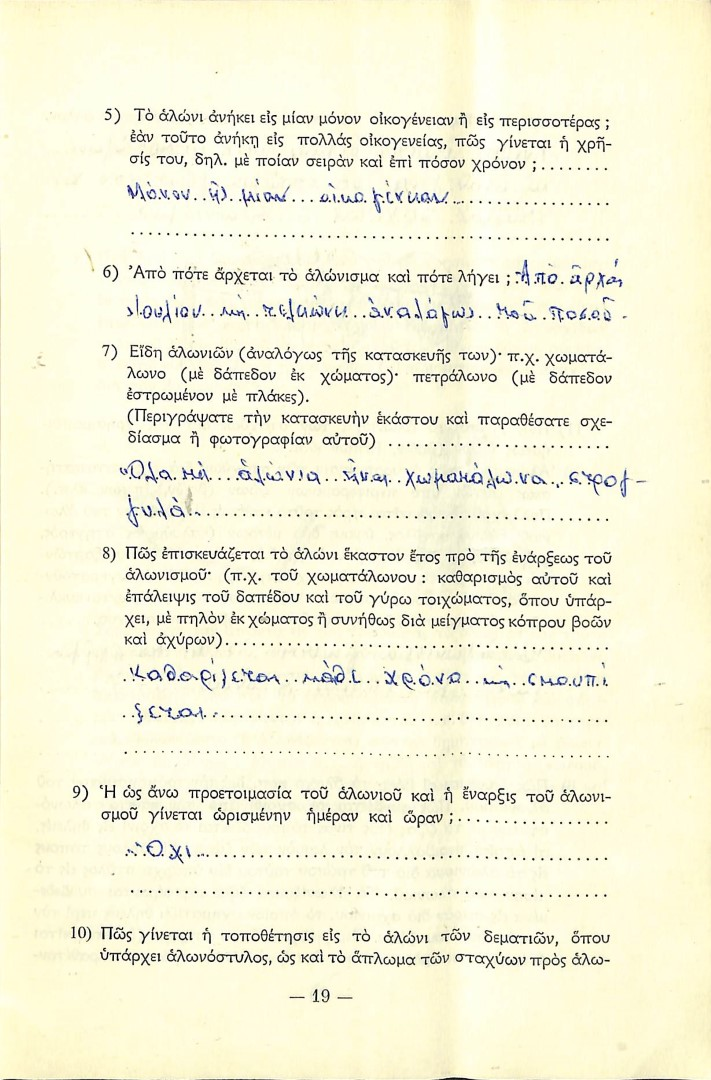 5) Τὸ ἁλώνι ἀνήκει εἰς μίαν μόνον οἰκογένειαν ἢ εἰς περισσοτέρας ;
ἐὰν τοῦτο ἀνήκῃ εἰς πολλάς οἰκογενείας, πῶς γίνεται ἡ χρῆ-
σίς του, δηλ. μὲ ποίαν σειρὰν καὶ ἐπὶ πόσον χρόνον ; ........
Μόνον εἰς μίαν οἰκογένειαν
6) Ἀπὸ πότε ἄρχεται τὸ ἁλώνισμα καὶ πότε λήγει ; Ἀπὸ ἀρχάς
Ἰουλίου καὶ τελειώνει ἀναλόγως τοῦ ποσοῦ.
7) Εἴδη ἁλωνιῶν (ἀναλόγως τῆς κατασκευῆς των)· π.χ. χωματά-
λωνο (μὲ δάπεδον ἐκ χώματος)· πετράλωνο (μὲ δάπεδον
ἐστρωμένον μὲ πλάκες).
(Περιγράψατε τὴν κατασκευὴν ἑκάστου καὶ παραθέσατε σχε-
δίασμα ἢ φωτογραφίαν αὐτοῦ) ....................
Ὅλα τὰ ἁλώνια εἶναι χωματάλωνα στρογ-
γυλά
8) Πῶς ἐπισκευάζεται τὸ ἁλώνι ἕκαστον ἔτος πρὸ τῆς ἐνάρξεως τοῦ
ἁλωνισμοῦ· (π.χ. τοῦ χωματάλωνου : καθαρισμὸς αὐτοῦ καὶ
ἐπάλειψις τοῦ δαπέδου καὶ τοῦ γύρω τοιχώματος, ὅπου ὑπάρ-
χει, μὲ πηλὸν ἐκ χώματος ἢ συνήθως διὰ μείγματος κόπρου βοῶν
καὶ ἀχύρων)...................................
Καθαρίζεται κάθε χρόνο καὶ σκουπί
ζεται
9) Ἡ ὡς ἄνω προετοιμασία τοῦ ἁλωνιοῦ καὶ ἡ ἔναρξις τοῦ ἁλωνι-
σμοῦ γίνεται ὡρισμένην ἡμέραν καὶ ὥραν ;................
Ὄχι
10) Πῶς γίνεται ἡ τοποθέτησις εἰς τὸ ἁλώνι τῶν δεματιῶν, ὅπου
ὑπάρχει ἁλωνόστυλος, ὡς καὶ τὸ ἅπλωμα τῶν σταχύων πρὸς ἁλω-
— 19 —